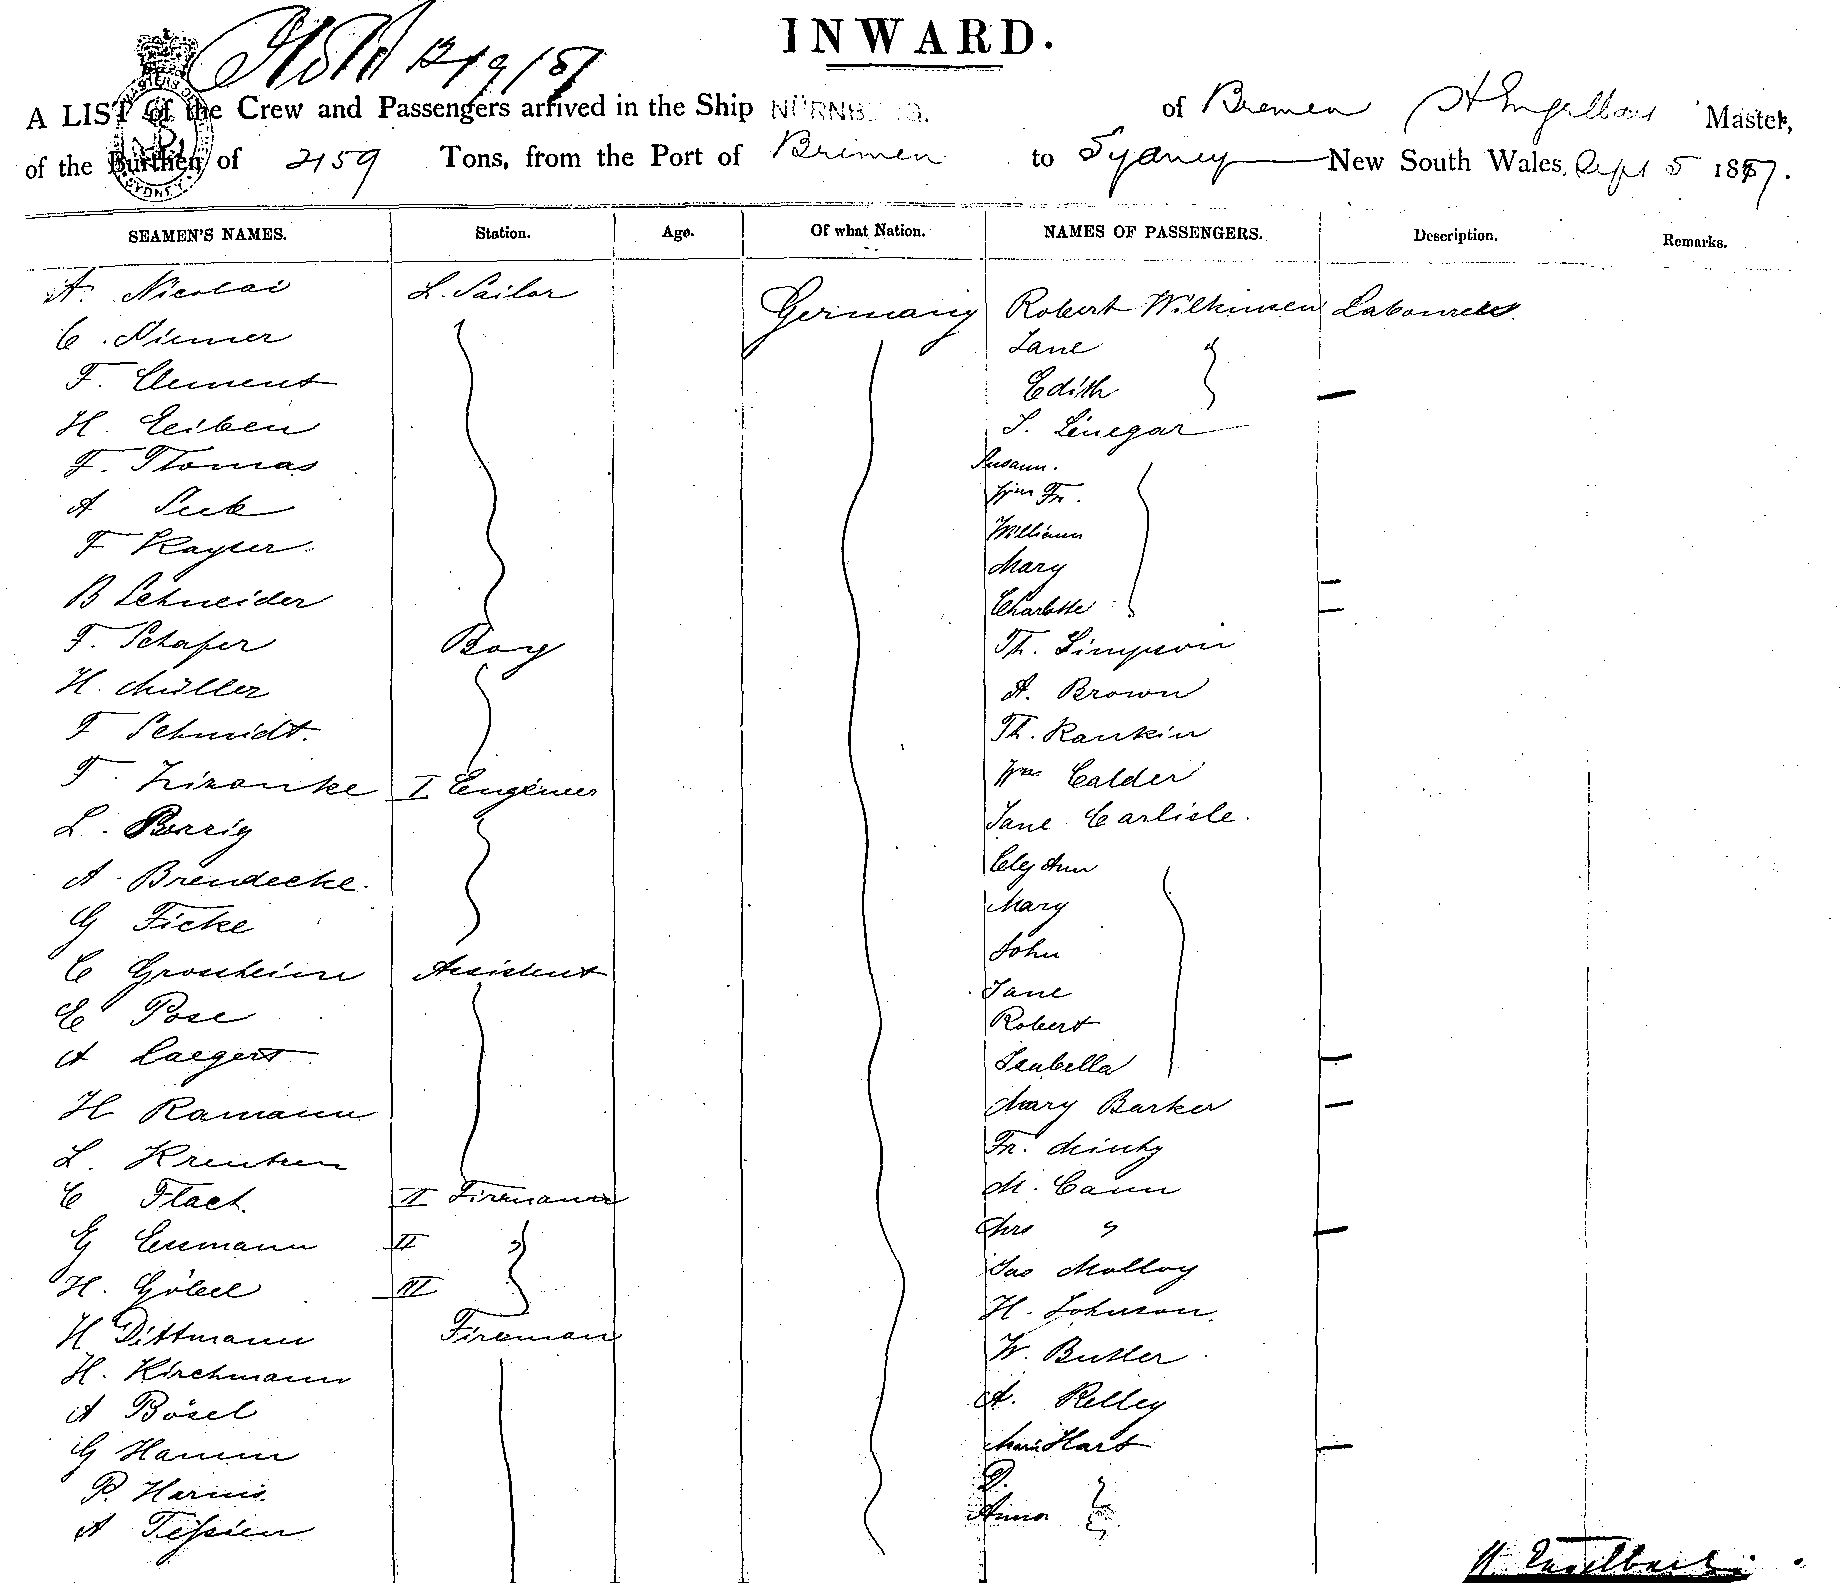 INWARD.
A LIST of the Crew and Passengers arrived in the Ship NÜRNB of Bremen Master,
of the Burthen of 2159 Tons, from the Port of Bremen to Sydney New South Wales, Sept 5 1887.
SEAMEN'S NAMES. Station. Age. Of what Nation. NAMES OF PASSENGERS. Description. Remarks.
A. Nicolai L. Sailor Germany Robert Wilkinson Labourers.
C. Niemer Jane
F. Clement Edith
H. Eeiben T. Linegar
F. Thomas Susann.
A Seek Wm Fr.
F Kayser William
B Schneider Mary
F. Schafer Boy Charlotte
H. Müller Th. Simpson
F Schmidt. A. Brown
F. I Engineer Th. Rankin
L. Wm Calder
A. Brendecke. Jane Carlisle.
G Ficke Mary
C Grossheim Assistent John
E Pose Jane
A Laegert Robert
H Ramann Isabella
L. Mary Barker
C Flach. II Firemann Fr.
G Essmann II M. Cann
H. Göbel III Mrs "
H Dittmann Fireman Jas Molloy
H. Kirchmann H. Johnson.
A Bösel W. Butler
G Hamm A. Kelley
P. Harms. Hart
A Teßien D.
Anna